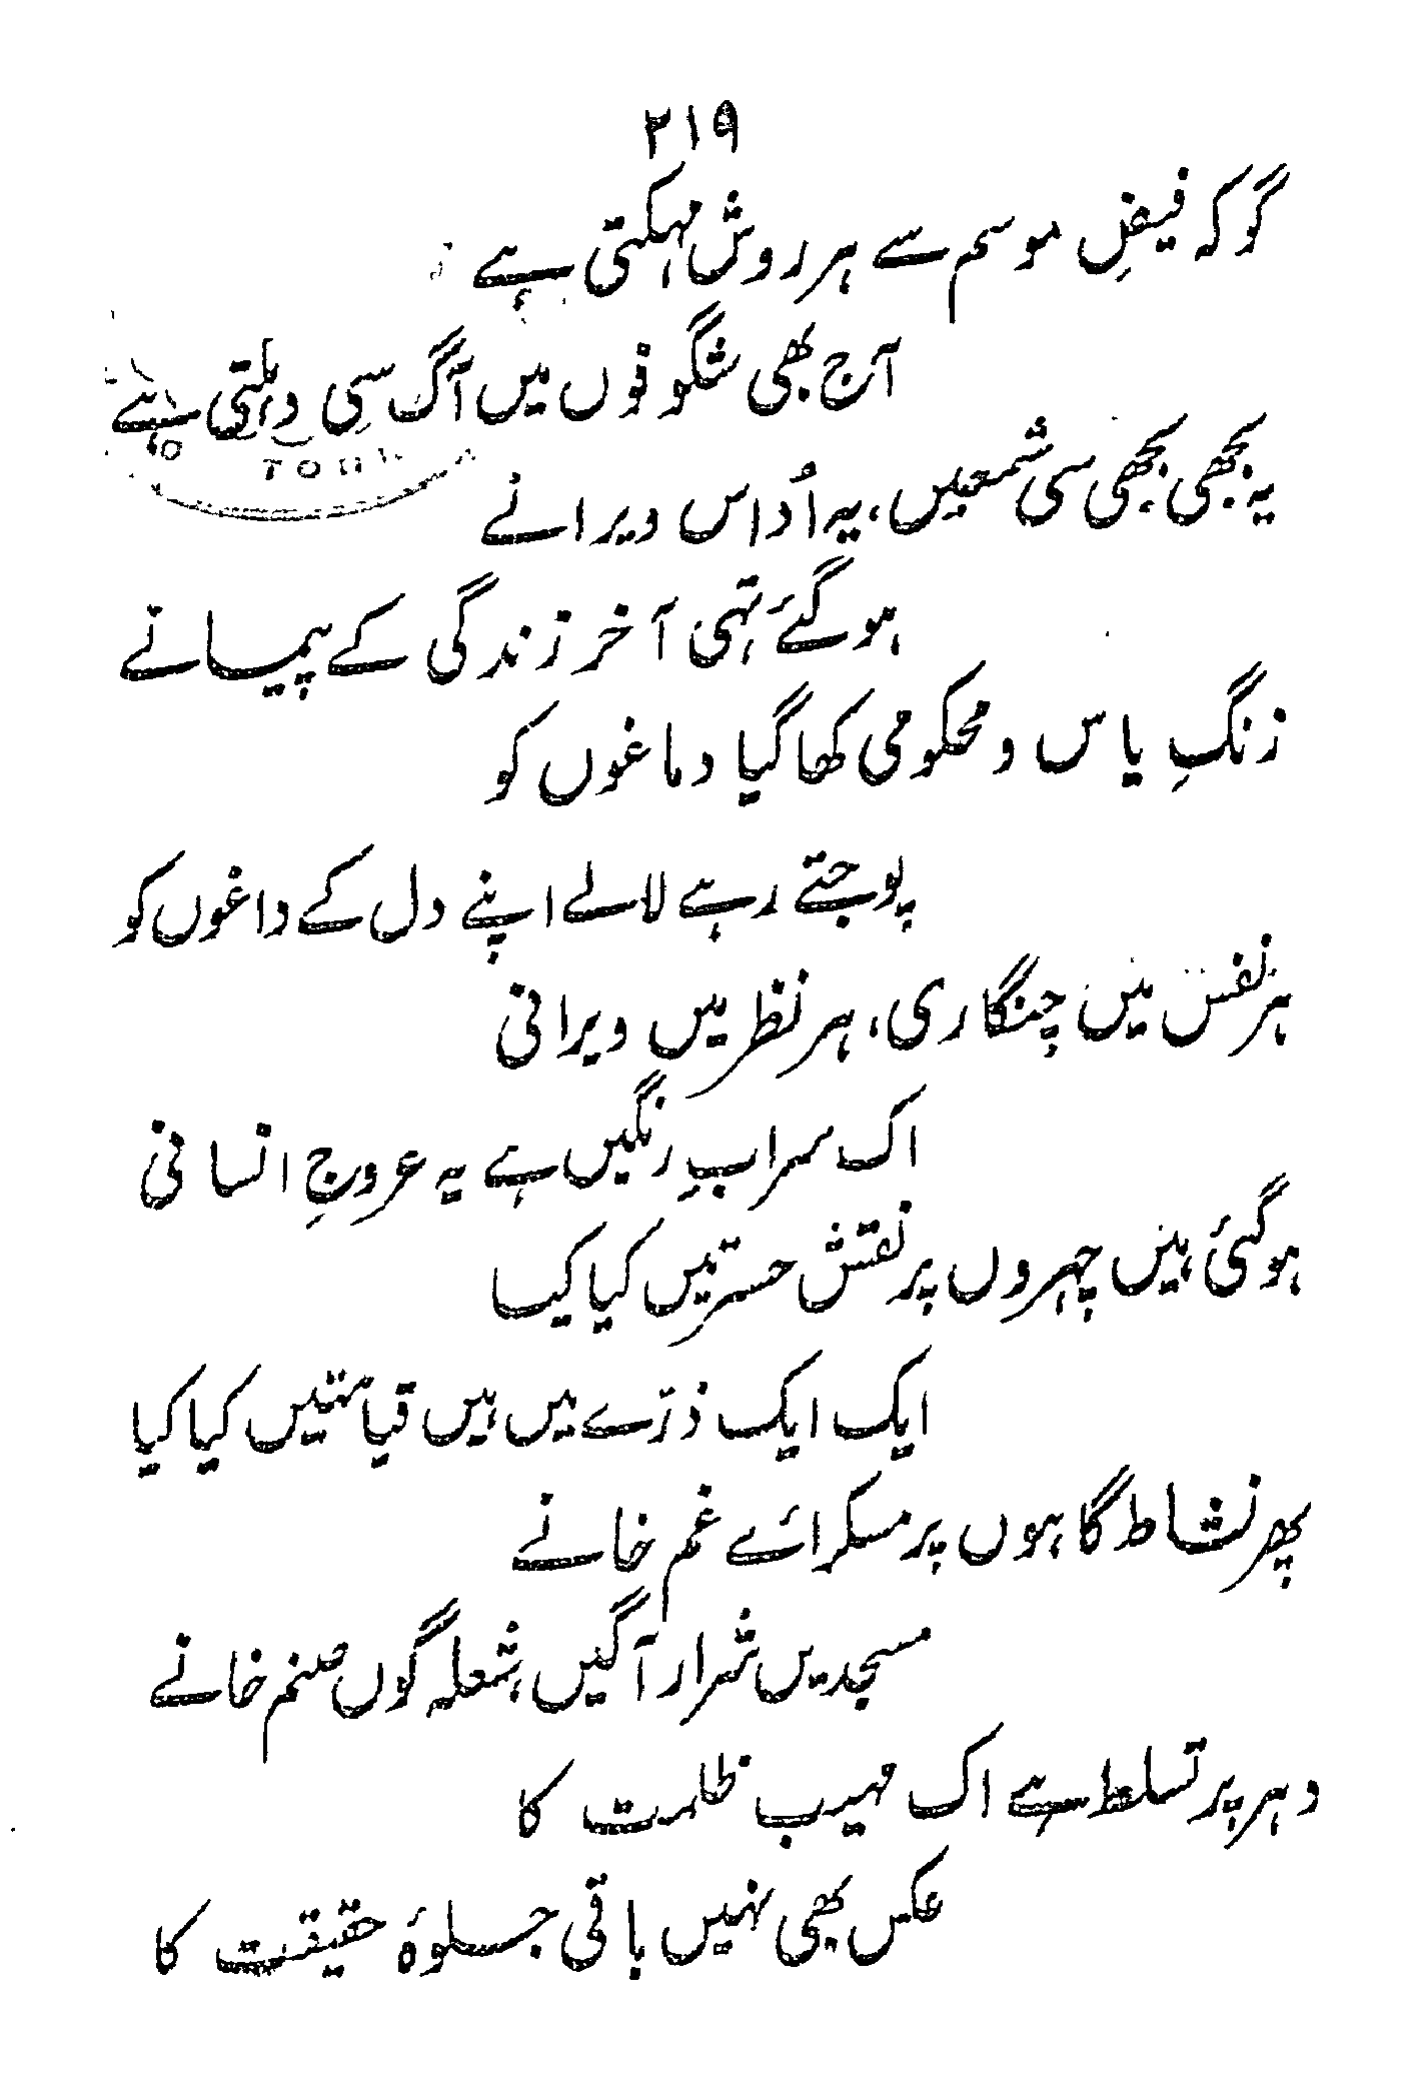 ۲۱۹
گو کہ فیضِ موسم سے ہر روش مہکتی ہے
آج بھی شگوفوں میں آگ سی دہکتی ہے
یہ بجھی بجھی سی شمعیں، یہ اُداس ویرانے
ہو گئے تہی آخر زندگی کے پیمانے
زنگِ یاس و محکومی کھا گیا دماغوں کو
پوجتے رہے لالے اپنے دل کے داغوں کو
ہر نفس میں چنگاری، ہر نظر میں ویرانی
اک سرابِ رنگیں ہے یہ عروجِ انسانی
ہو گئی ہیں چہروں پر نقش حسرتیں کیا کیا
ایک ایک ذرّے میں ہیں قیامتیں کیا کیا
پھر نشاط گاہوں پر مسکرائے غم خانے
مسجدیں شرار آگیں، شعلہ گوں صنم خانے
دہر پر تسلط ہے اک مہیب ظلمت کا
عکس بھی نہیں باقی جلوۂ حقیقت کا